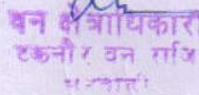 वन क्षेत्राधिकारी
टकनौर वन राजि